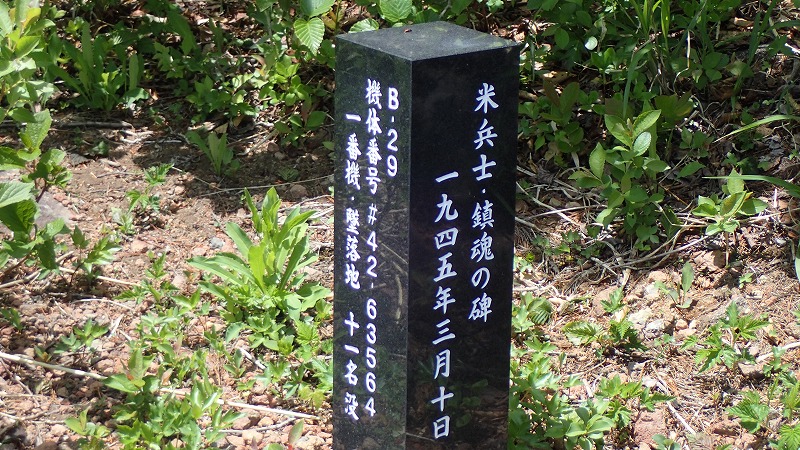 米兵士・鎮魂の碑
一九四五年三月十日
B-29
機体番号#42-63564
一番機・墜落地 十一名 没